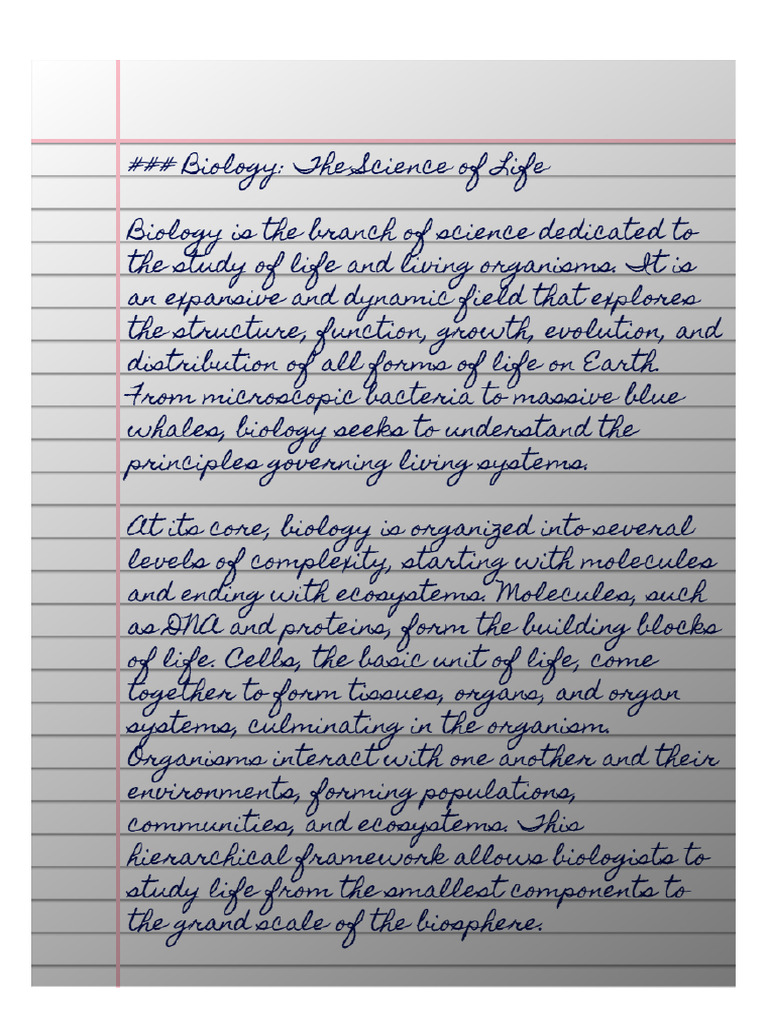 ### Biology: The Science of Life
Biology is the branch of science dedicated to
the study of life and living organisms. It is
an expansive and dynamic field that explores
the structure, function, growth, evolution, and
distribution of all forms of life on Earth.
From microscopic bacteria to massive blue
whales, biology seeks to understand the
principles governing living systems.
At its core, biology is organized into several
levels of complexity, starting with molecules
and ending with ecosystems. Molecules, such
as DNA and proteins, form the building blocks
of life. Cells, the basic unit of life, come
together to form tissues, organs, and organ
systems, culminating in the organism.
Organisms interact with one another and their
environments, forming populations,
communities, and ecosystems. This
hierarchical framework allows biologists to
study life from the smallest components to
the grand scale of the biosphere.